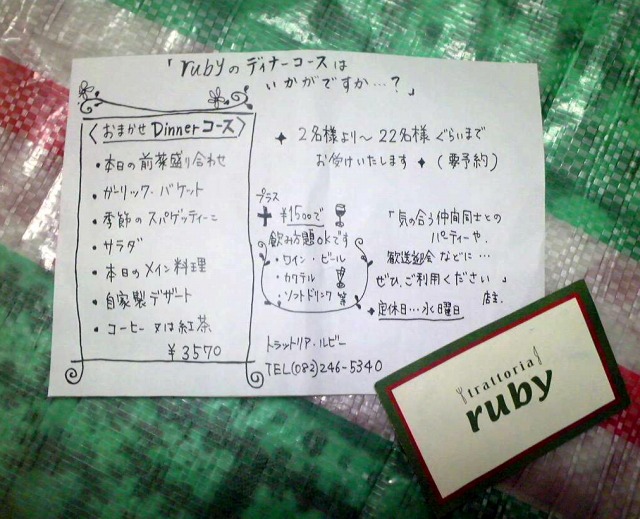 「rubyのディナーコースは
いかがですか…?」
〈おまかせ Dinner コース〉
・本日の前菜盛り合わせ
・ガーリック・バケット
・季節のスパゲッティーニ
・サラダ
・本日のメイン料理
・自家製デザート
・コーヒー又は紅茶
¥3570
✦ 2名様より〜22名様ぐらいまで
お受けいたします ✦ (要予約)
プラス
+ ¥1500で
飲み放題okです
・ワイン・ビール
・カクテル
・ソフトドリンク等
「気の合う仲間同士との
パーティーや、
歓送迎会などに…
ぜひ、ご利用ください」
店主.
✦定休日…水曜日
トラットリア・ルビー
TEL(082)246-5340
trattoria
ruby